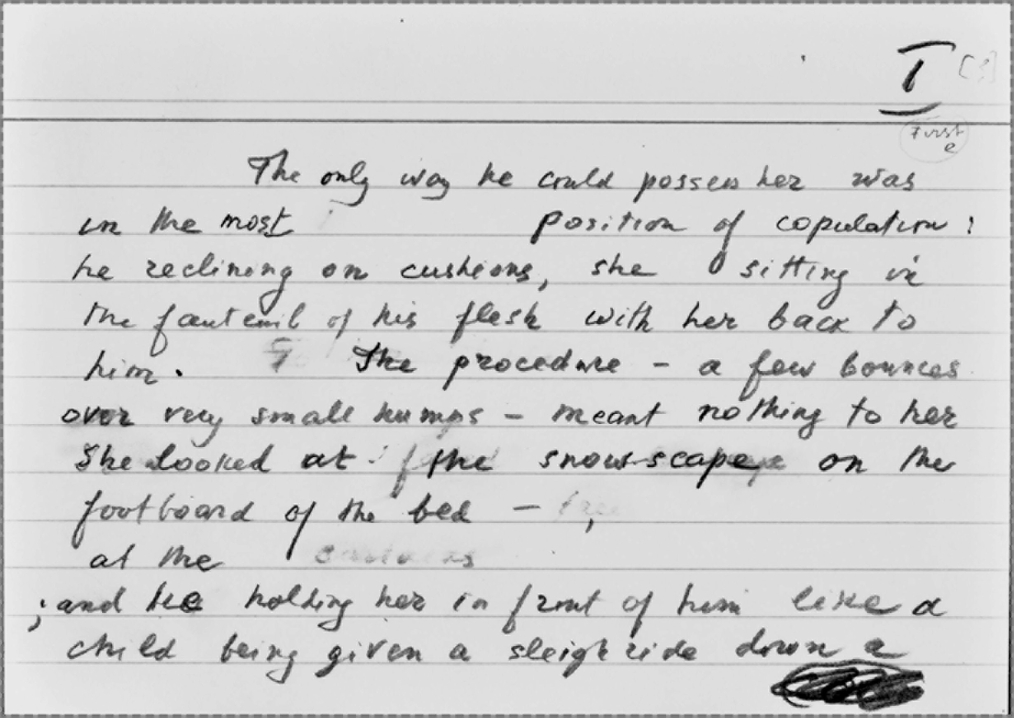 I
First
The only way he could possess her was
in the most position of copulation :
he reclining on cushions, she sitting in
the fauteuil of his flesh with her back to
him. The procedure – a few bounces
over very small humps – meant nothing to her
She looked at the snow-scape on the
footboard of the bed – ,
at the
; and he holding her in front of him like a
child being given a sleigh ride down a